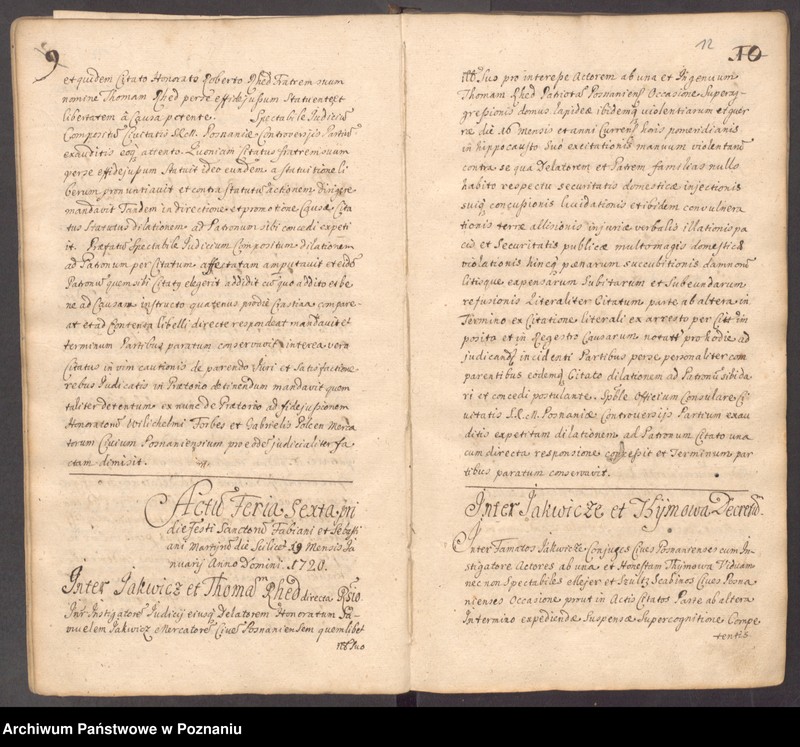 9
et quidem Citato Honorato Roberto Rhed Fratrem suum
nomine Thomam Rhed per se effidejussum Statuente et
libertatem à Causa petente. Spectabile Judiciũ
Compositũ Civitatis S.R.M. Posnaniæ Controversijs Partiũ
exauditis eoq attento. Quoniam Citatus fratrem suum
per se effidejussum Statuit ideo eundem a statuitione li
berum pronuntiavit et contra statutũ actionem dirigere
mandavit Tandem in directione et promotione Causæ Cita
tus Statutus dilationem ad Patronum sibi concedi expeti
it. Præfatũ Spectabile Judicium Compositum dilationem
ad Patronum per Citatum affectatam amputavit et eidẽ
Patronũ quem sibi Citatq elegerit addidit cũ quo addito et be
ne ad Causam instructo quatenus prodie Crastina compare-
at et ad Contenta libelli directe respondeat mandavit et
terminum Partibus paratum conservavit interea vero
Citatus in vim cautionis de parendo Juri et Satisfactione
rebus Judicatis in Prætorio detinendum mandavit quem
taliter detentum ex nunc de Prætorio ad fidejussionem
Honoratorũ Wilichelmi Forbes et Gabrielis Polcen Merca
torum Civium Posnaniensium pro eodẽ judicialiter fa
ctam dimisit.
Actũ Feria Sexta pri
die Festi Sanctorũ Fabiani et Sebasti
ani Martyrũ die Scilicet 19 Mensis Ja
nuarij Anno Domini. 1720.
Inter Jakwicz et Thomam Rhed directa Rsio
Intr Instigatorẽ Judicij eiusq Delatorem Honoratum Sa-
muelem Jakwicz Mercatorẽ Civem Posnaniensem quemlibet
ntb Suo
12
10
ntb Suo pro interesse Actorem ab una et Ingenuum
Thomam Rhed Patriota Posnaniensẽ Occasione Superag-
gressionis domus lapideæ ibidemq violentiarum et guer
ræ die 16 Mensis et anni Currenẽ horis pomeridianis
in hippocausto Suo excitationis manuum violentarũ
contra se qua Delatorem et Patrem familias nullo
habito respectu securitatis domesticæ injectionis
suiq concussionis lucidationis et ibidem convulnera
tionis terræ allisionis injuriæ verbalis illationis pa
cis et Securitatis publicæ multo magis domesticæ
violationis hincq pænarum succubitionis damnorũ
litisque expensarum Subitarum et Subeundarum
refusionis Literaliter Citatum parte ab altera in
Termino ex Citatione literali ex arresto per Citt im
posito et in Regestro Causarum notatt pro hodie ad
judicandũ incidenti Partibus per se personaliter com
parentibus eodemq Citato dilationem ad Patronũ sibi da
ri et concedi postulante. Spble Officium Consulare Ci
vitatis S.R.M. Posnaniæ Controversijs Partium exau
ditis expetitam dilationem ad Patronum Citato una
cum directa responsione concessit et Terminum par
tibus paratum conservavit.
Inter Jakwicze et Thymowa Decretũ.
Inter Famatos Jakwicze Conjuges Cives Posnanienses cum In-
stigatore Actores ab una et Honestam Thymowa Viduam
nec non Spectabiles Mejer et Szultz Scabinos Cives Posna
nienses Occasione prout in Actis Citatos Parte ab altera
In termino expediendæ Suspensæ Supercognitione Compe
tentis
Archiwum Państwowe w Poznaniu